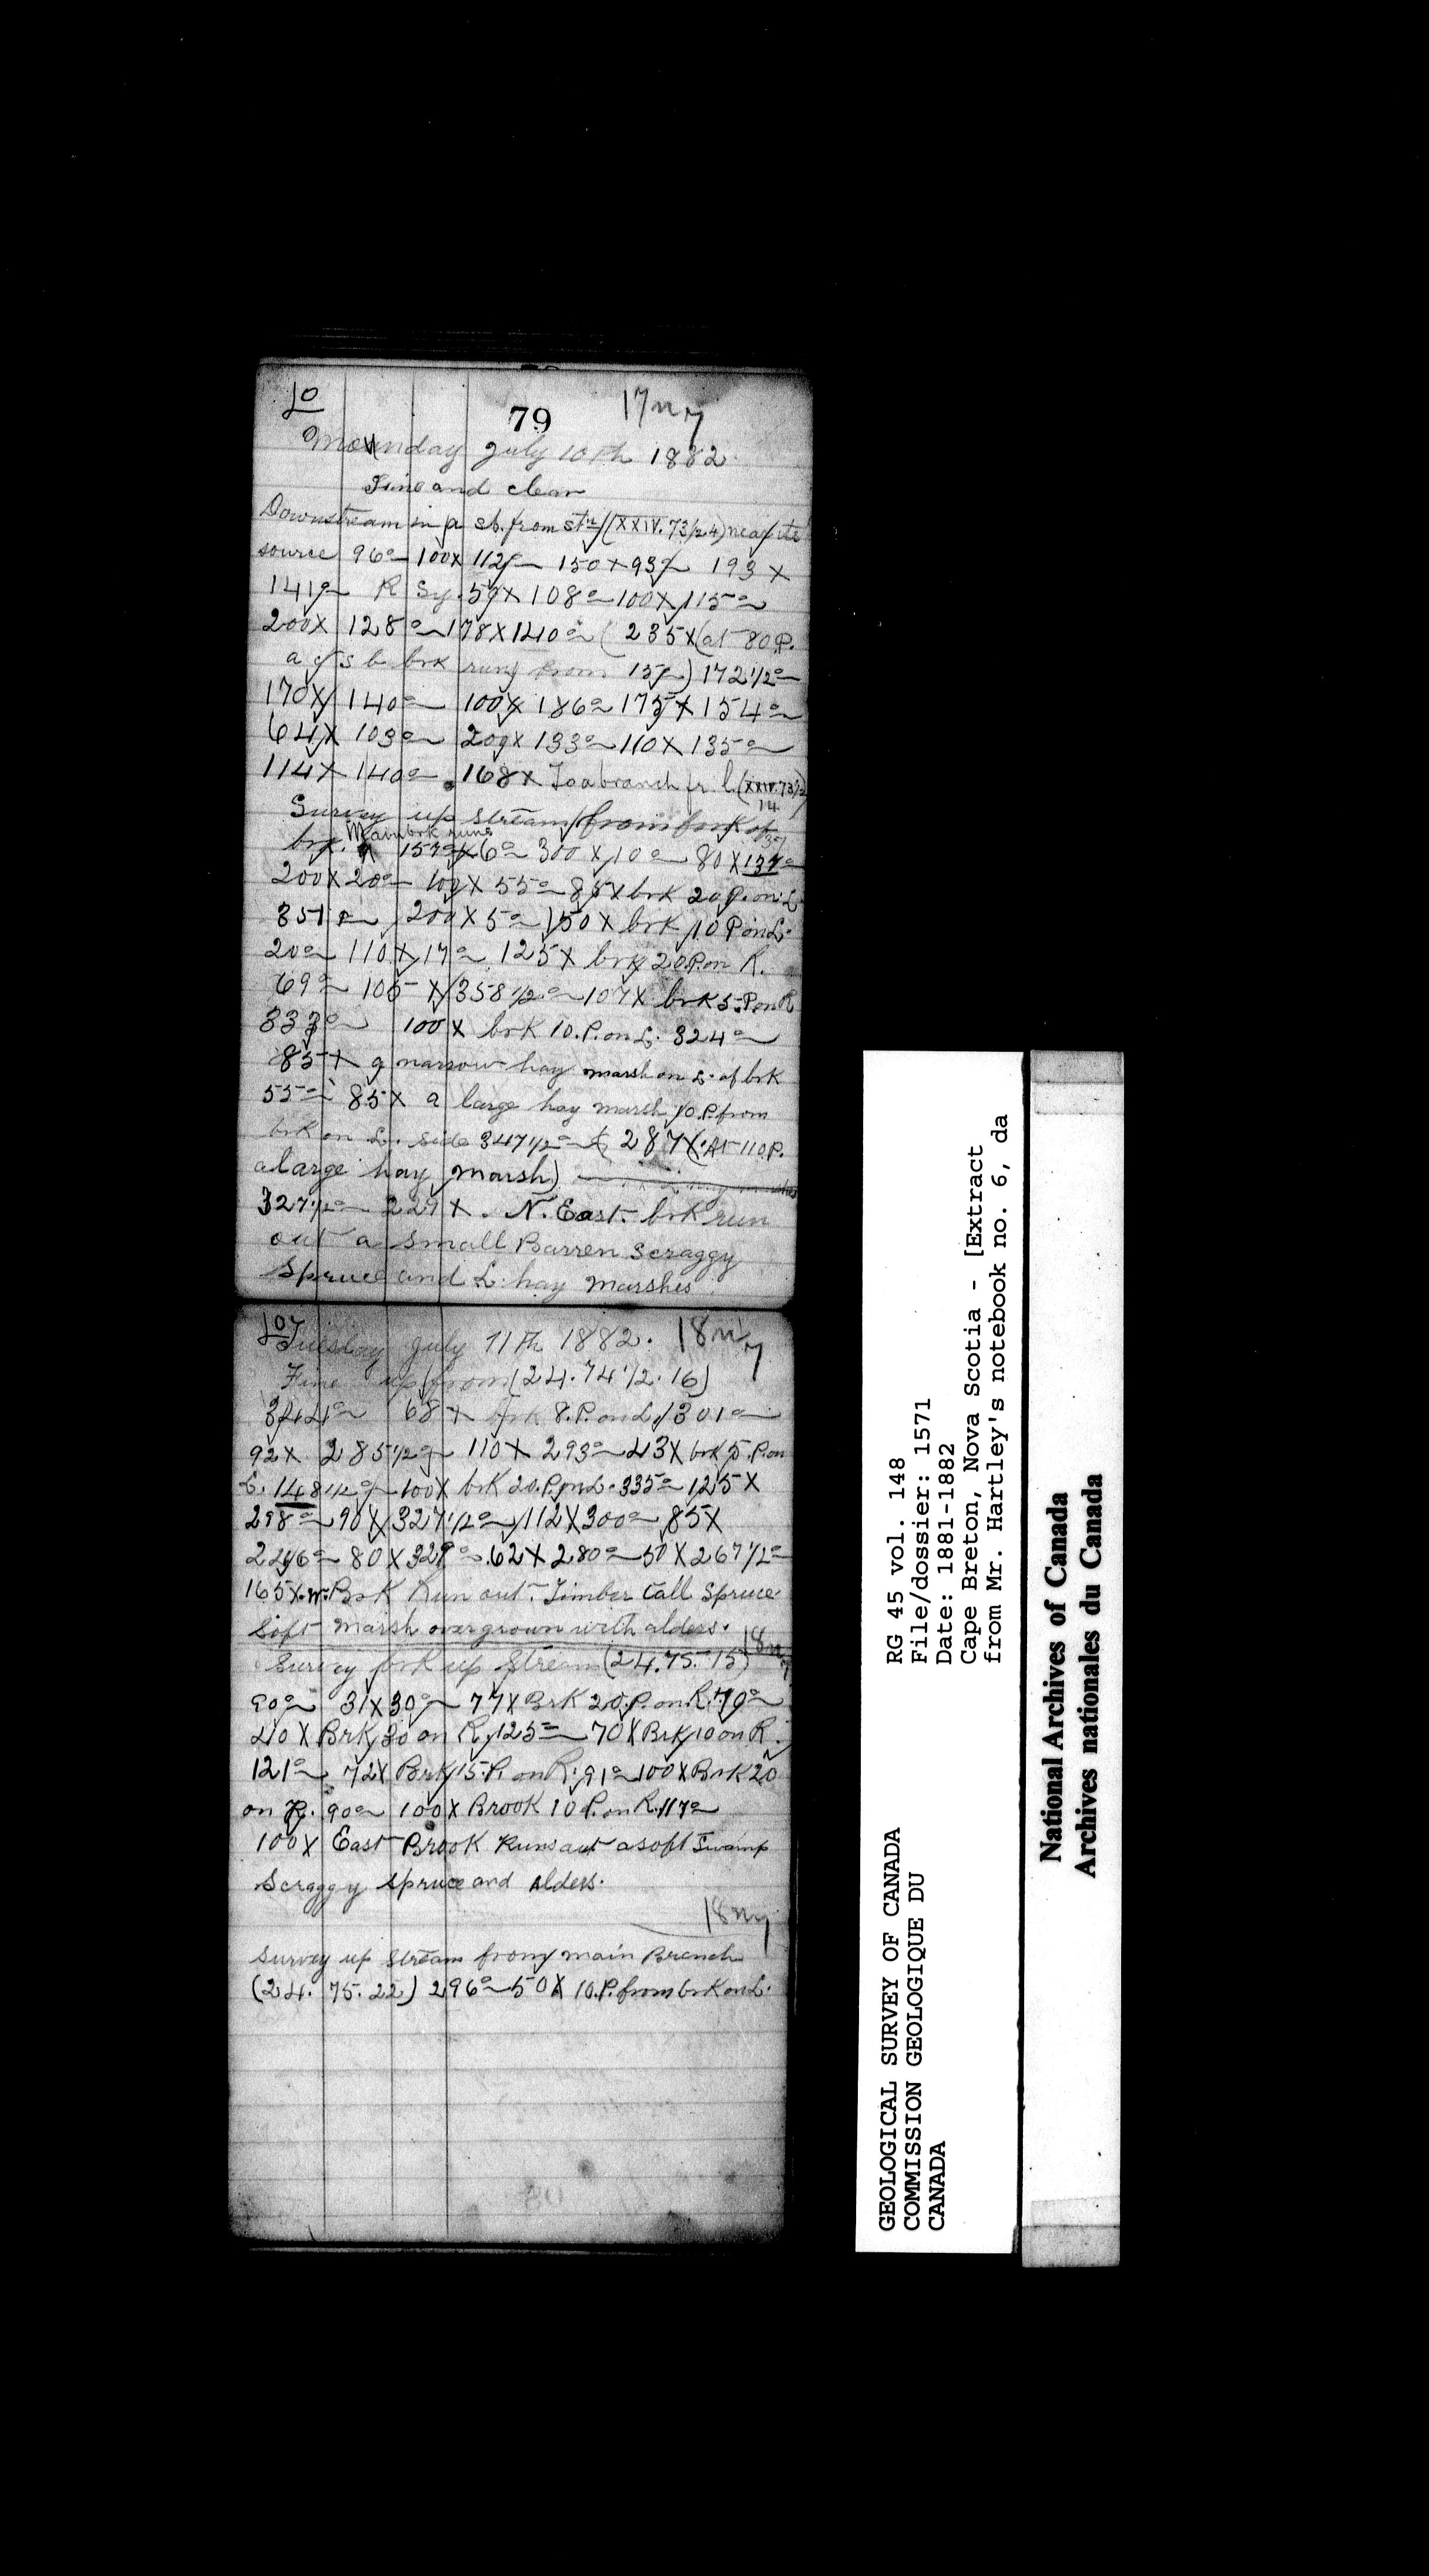 10
79
17 n 7
Monday July 10th 1882.
Fine and clear
Downstream in a sb. from stn (XXIV. 73/24) near its
source 96° 100 x 112° 150 x 93° 193 x
141° R Sy. 59 x 108° 100 x 115°
200 x 128° 178 x 140° (235 x (at 80 P.
a g s b brk runs from 15°) 172 1/2°
170 x 140° 100 x 186° 175 x 154°
64 x 103° 209 x 133° 110 x 135°
114 x 140° 168 x To a branch fr. l. (XXIV. 73 1/2
14.
Survey up stream from fork of
brk. Main brk runs 157° x 6° 300 x 10° 80 x 137°
200 x 20° 100 x 55° 85 x brk 20 P. on L.
351° 200 x 5° 150 x brk 10 P on L.
20° 110 x 17° 125 x brk 20 P. on R.
69° 105 x 358 1/2° 107 x brk 5 P on R
333° 100 x brk 10. P. on L. 324°
85 x a narrow hay marsh on L. of brk
55° 85 x a large hay marsh 10. P. from
brk on L. side 347 1/2° 287 x (At 110 P.
a large hay marsh)
327 1/2° 229 x. N. East. brk run
out a small Barren Scraggy
Spruce and L. hay Marshes.
10
Tuesday July 11th 1882. 18 n 7
Fine up from (24. 74 1/2. 16)
344° 68 x brk 8. P. on L. 301°
92 x 285 1/2° 110 x 293° 43 x brk 5. P. on
L. 148 1/2° 100 x brk 20. P. on L. 335° 125 x
298° 90 x 327 1/2° 112 x 300° 85 x
246° 80 x 329° 62 x 280° 50 x 267 1/2°
165 x. W. Brk Run out. Timber tall Spruce
Soft Marsh overgrown with alders.
18 n 7
Survey fork up Stream (24. 75. 15)
90° 31 x 30° 77 x Brk 20. P. on R. 79°
40 x Brk 30 on R. 125° 70 x Brk 10 on R.
121° 72 x Brk 15. P. on R. 91° 100 x Brk 20
on R. 90° 100 x Brook 10 P. on R. 117°
100 x East Brook Runs out a soft Swamp
Scraggy spruce and alders.
18 n 7
Survey up stream from main Branch
(24. 75. 22) 296° 50 x 10. P. from brk on L.
GEOLOGICAL SURVEY OF CANADA
COMMISSION GEOLOGIQUE DU
CANADA
RG 45 vol. 148
File/dossier: 1571
Date: 1881-1882
Cape Breton, Nova Scotia - [Extract
from Mr. Hartley's notebook no. 6, da
National Archives of Canada
Archives nationales du Canada